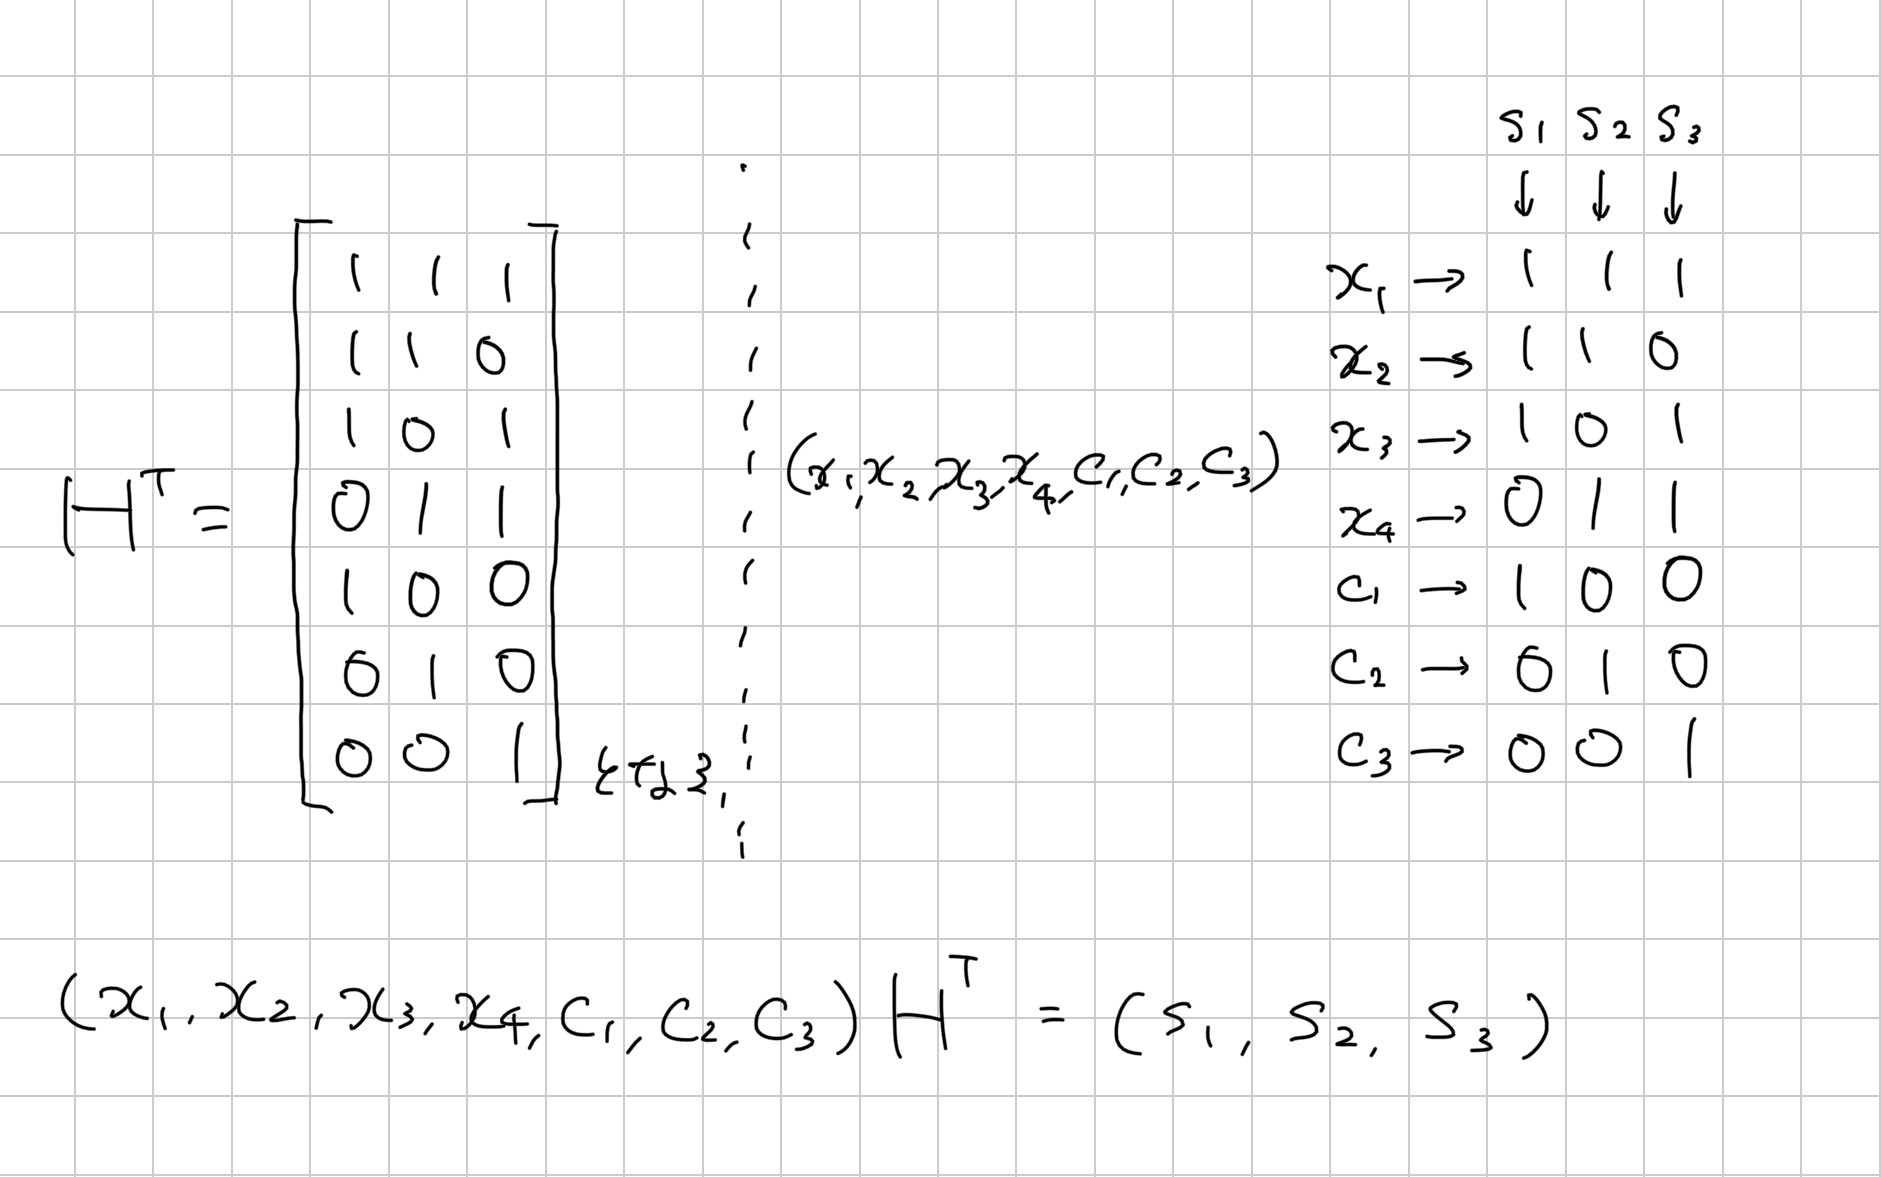 H^T =
1 1 1
1 1 0
1 0 1
0 1 1
1 0 0
0 1 0
0 0 1
とする,
(x1, x2, x3, x4, C1, C2, C3)
S1 S2 S3
↓ ↓ ↓
x1 → 1 1 1
x2 → 1 1 0
x3 → 1 0 1
x4 → 0 1 1
C1 → 1 0 0
C2 → 0 1 0
C3 → 0 0 1
(x1, x2, x3, x4, C1, C2, C3) H^T = (S1, S2, S3)